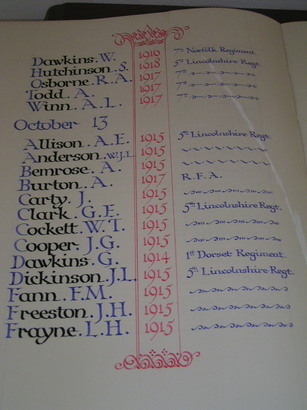 Dawkins. W. 1916 7th Norfolk Regiment.
Hutchinson. S. 1918 5th Lincolnshire Regt.
Osborne. R. A. 1917 7th
Todd. A. 1917 7th
Winn. A. L. 1917
October 13
Allison. A. E. 1915 5th Lincolnshire Regt.
Anderson. W.J.L. 1915
Bemrose. A. 1915
Burton. A. 1917 R.F.A.
Carty. J. 1915
Clark. G. E. 1915 5th Lincolnshire Regt.
Cockett. W. T. 1915
Cooper. J. G. 1915
Dawkins. G. 1914 1st Dorset Regiment.
Dickinson. J. L. 1915 5th Lincolnshire Regt.
Fann. F. M. 1915
Freeston. J. H. 1915
Frayne. L. H. 1915